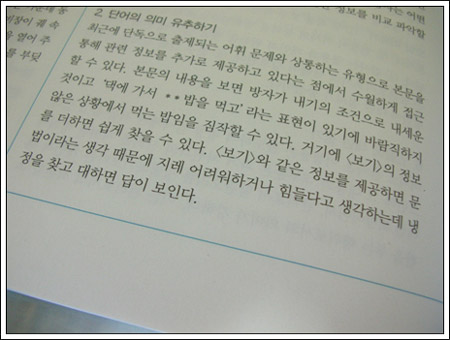 정보를 비교 파악할
2. 단어의 의미 유추하기
최근에 단독으로 출제되는 어휘 문제와 상통하는 유형으로 본문을
통해 관련 정보를 추가로 제공하고 있다는 점에서 수월하게 접근
할 수 있다. 본문의 내용을 보면 방자가 내기의 조건으로 내세운
것이고 '댁에 가서 **밥을 먹고'라는 표현이 있기에 바람직하지
않은 상황에서 먹는 밥임을 짐작할 수 있다. 거기에 <보기>의 정보
를 더하면 쉽게 찾을 수 있다. <보기>와 같은 정보를 제공하면 문
법이라는 생각 때문에 지레 어려워하거나 힘들다고 생각하는데 냉
정을 찾고 대하면 답이 보인다.